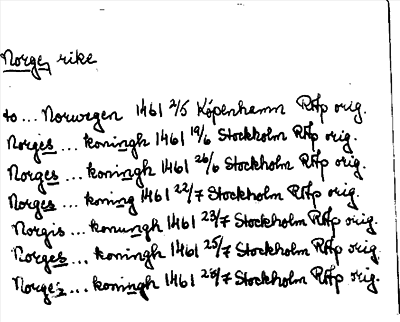 Norge, rike
to... Norwegen 1461 2/5 Köpenhamn RAp orig.
Norges... koningh 1461 19/6 Stockholm RAp orig.
Norges... koningh 1461 26/6 Stockholm RAp orig.
Norges... koning 1461 22/7 Stockholm RAp orig.
Norgis... konungh 1461 23/7 Stockholm RAp orig.
Norges... koningh 1461 25/7 Stockholm RAp orig.
Norges... koningh 1461 28/7 Stockholm RAp orig.